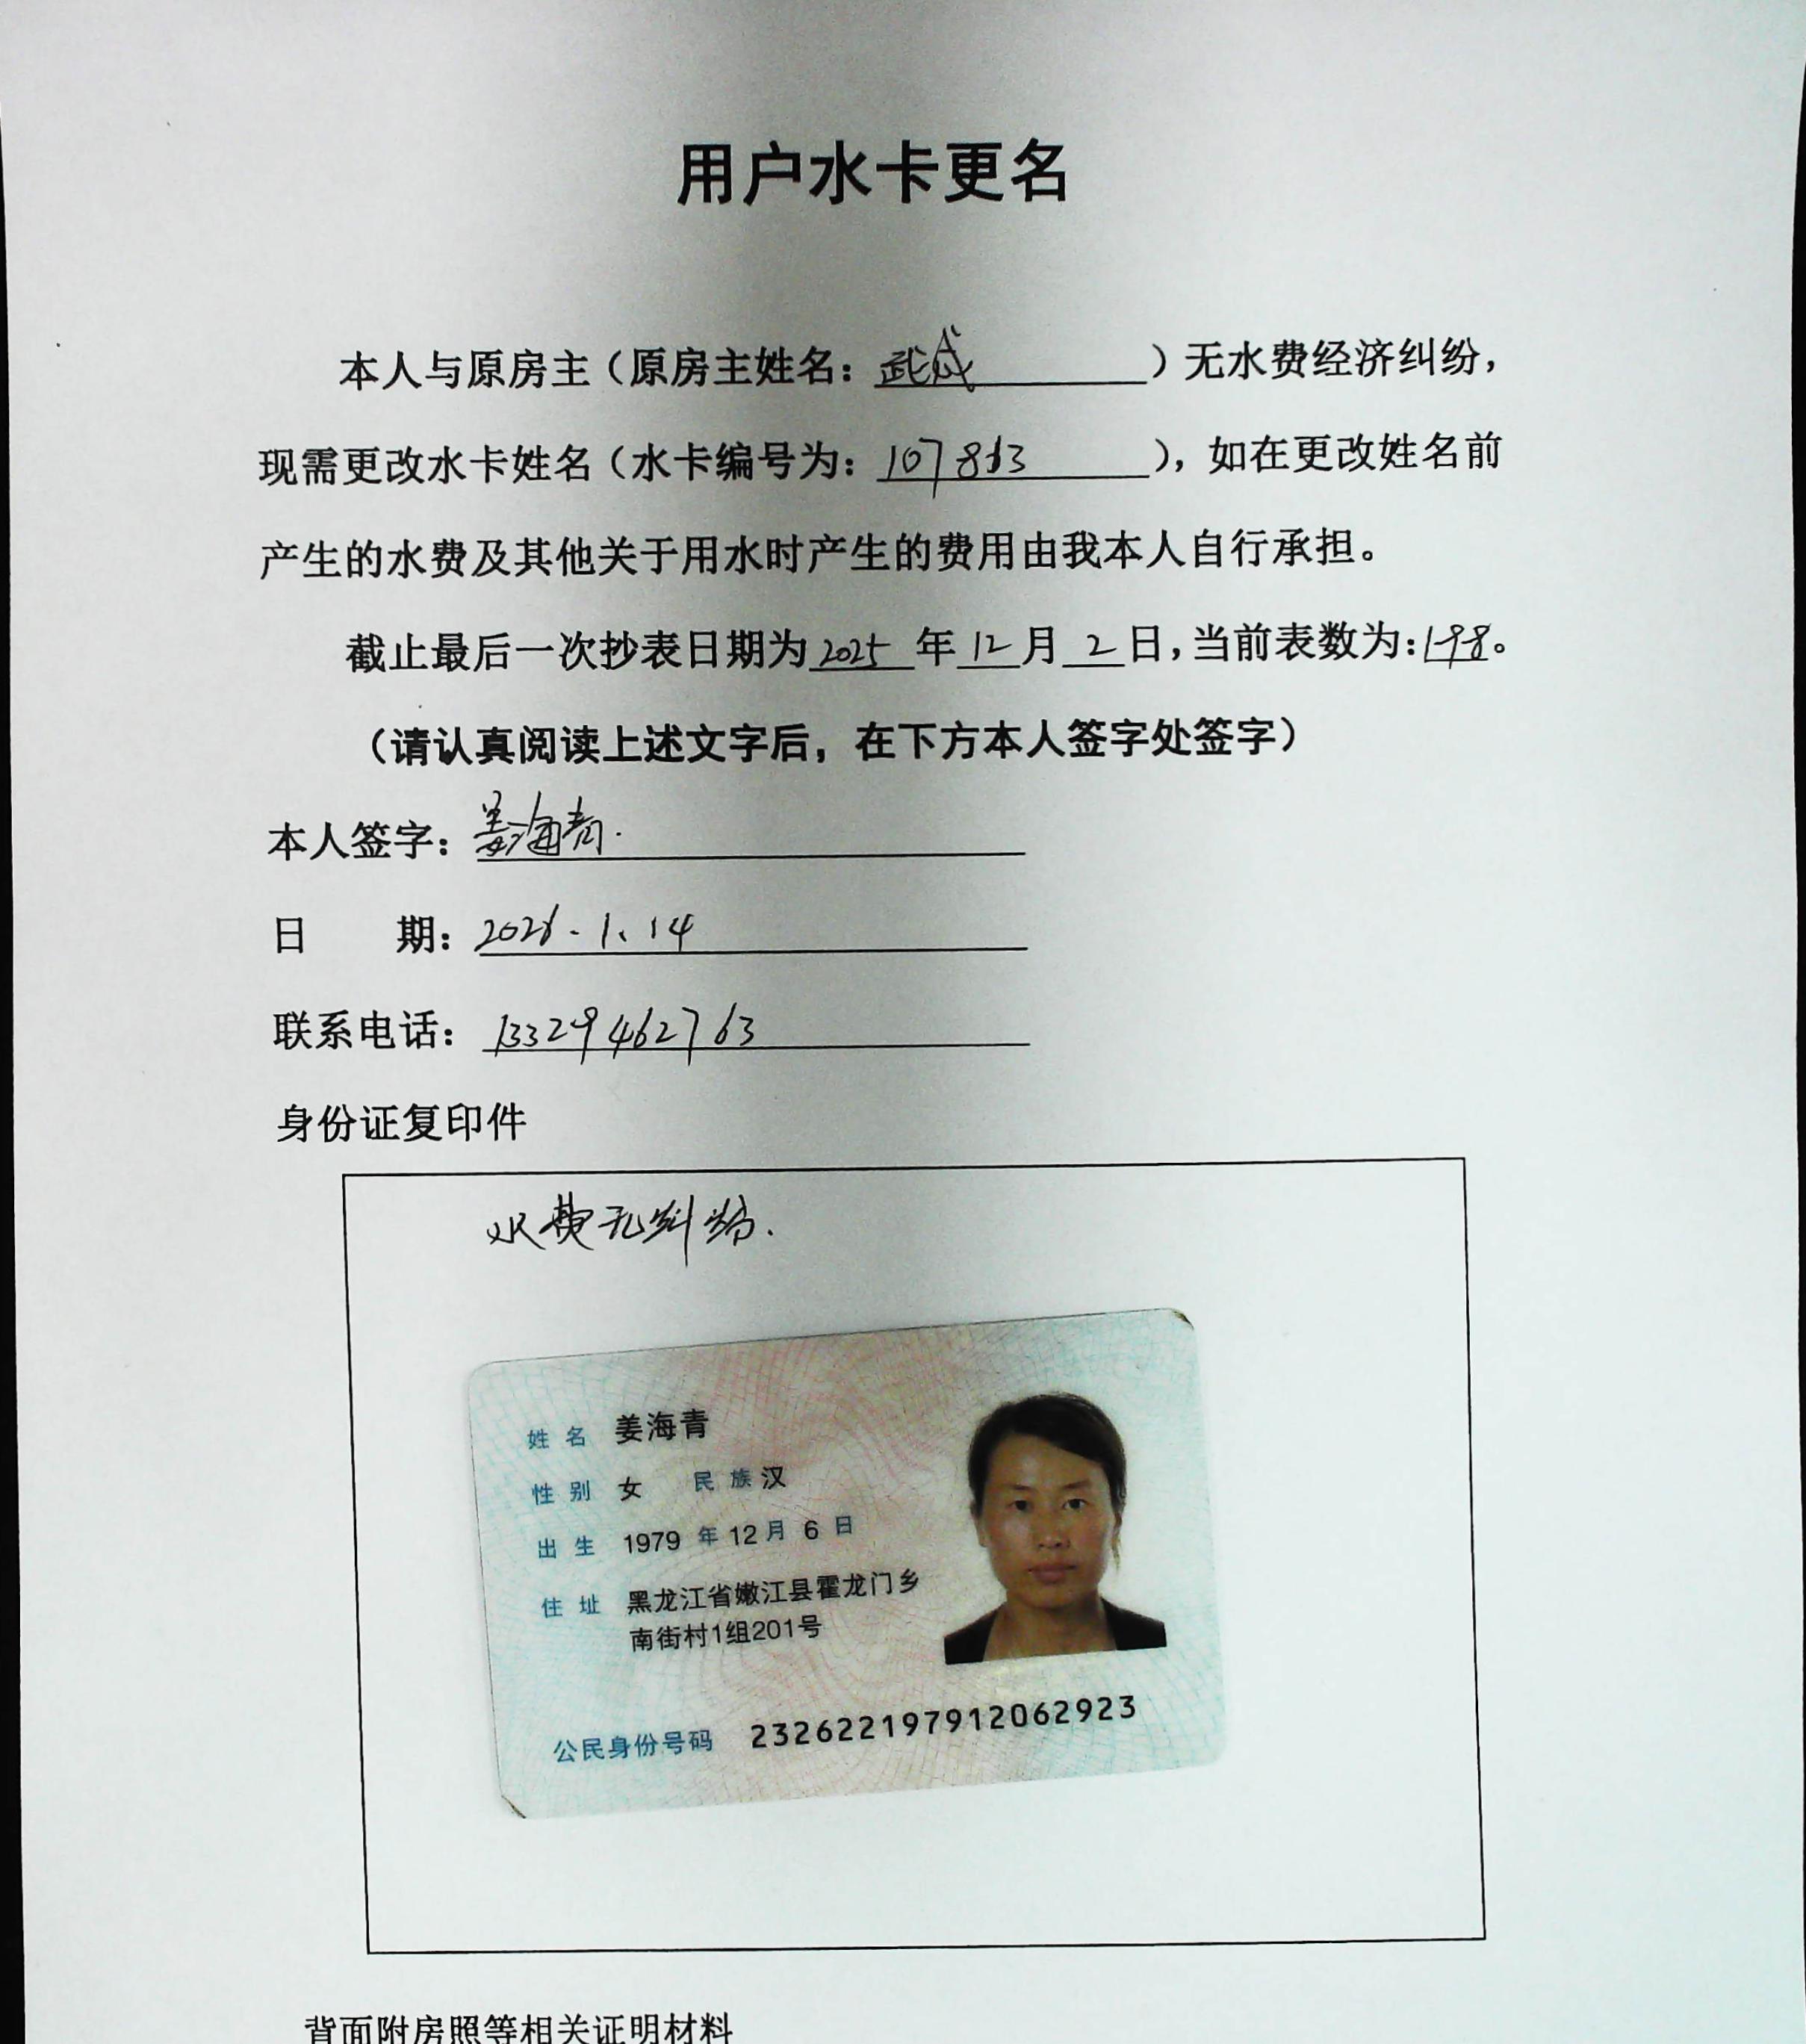 用户水卡更名
本人与原房主（原房主姓名：武成）无水费经济纠纷，
现需更改水卡姓名（水卡编号为：107863），如在更改姓名前
产生的水费及其他关于用水时产生的费用由我本人自行承担。
截止最后一次抄表日期为2025年12月2日，当前表数为：198。
（请认真阅读上述文字后，在下方本人签字处签字）
本人签字：姜海青.
日期：2026.1.14
联系电话：13329462763
身份证复印件
水费无纠纷.
姓名 姜海青
性别 女 民族 汉
出生 1979年12月6日
住址 黑龙江省嫩江县霍龙门乡
南街村1组201号
公民身份号码 232622197912062923
背面附房照等相关证明材料